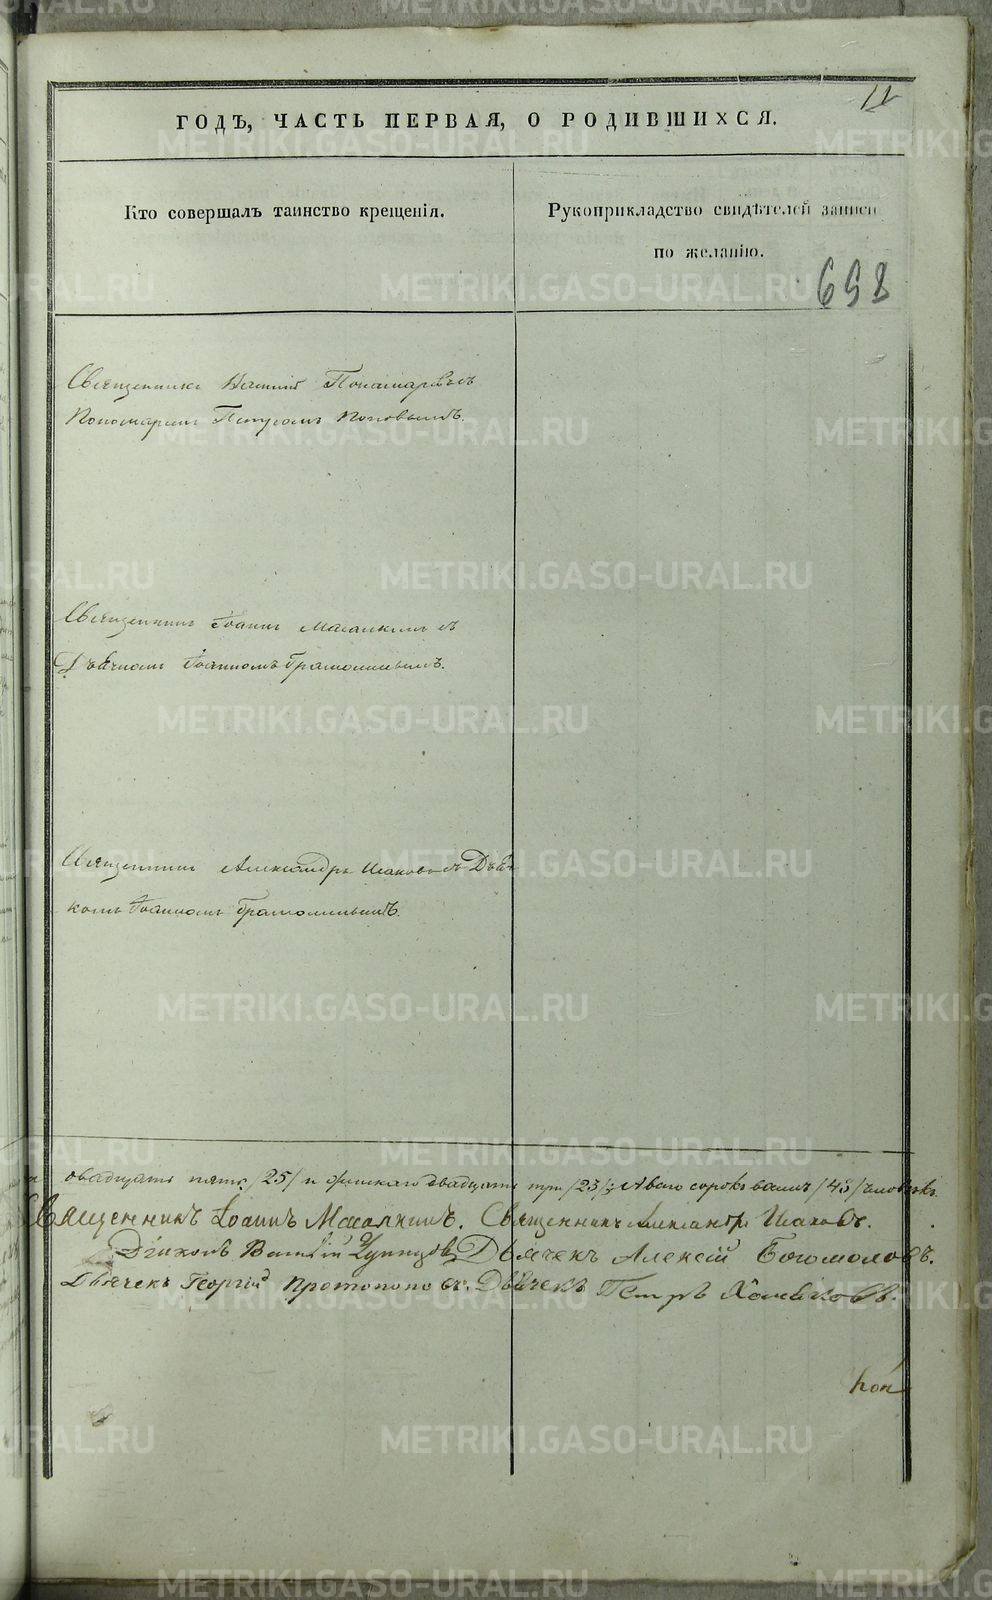 11
ГОДЪ, ЧАСТЬ ПЕРВАЯ, О РОДИВШИХСЯ.
Кто совершалъ таинство крещенія.
Рукоприкладство свидѣтелей записи
по желанію.
698
Священникъ Василій Пономаревъ съ
Пономаремъ Петромъ Поповымъ.
Священникъ Іоаннъ съ
Дьячкомъ Іоанномъ Грамолинымъ.
Священникъ Александръ Исаковъ съ Дьяч-
комъ Іоанномъ Грамолинымъ.
двадцать пять /25/ и женскаго двадцать три /23/; А всего сорокъ восемь /48/ человѣкъ.
Священникъ Іоаннъ Священникъ Александръ Исаковъ.
Діаконъ Василій Дьячекъ Алексій Богомоловъ.
Дьячекъ Георгій Протопоповъ. Дьячекъ Петръ
METRIKI.GASO-URAL.RU